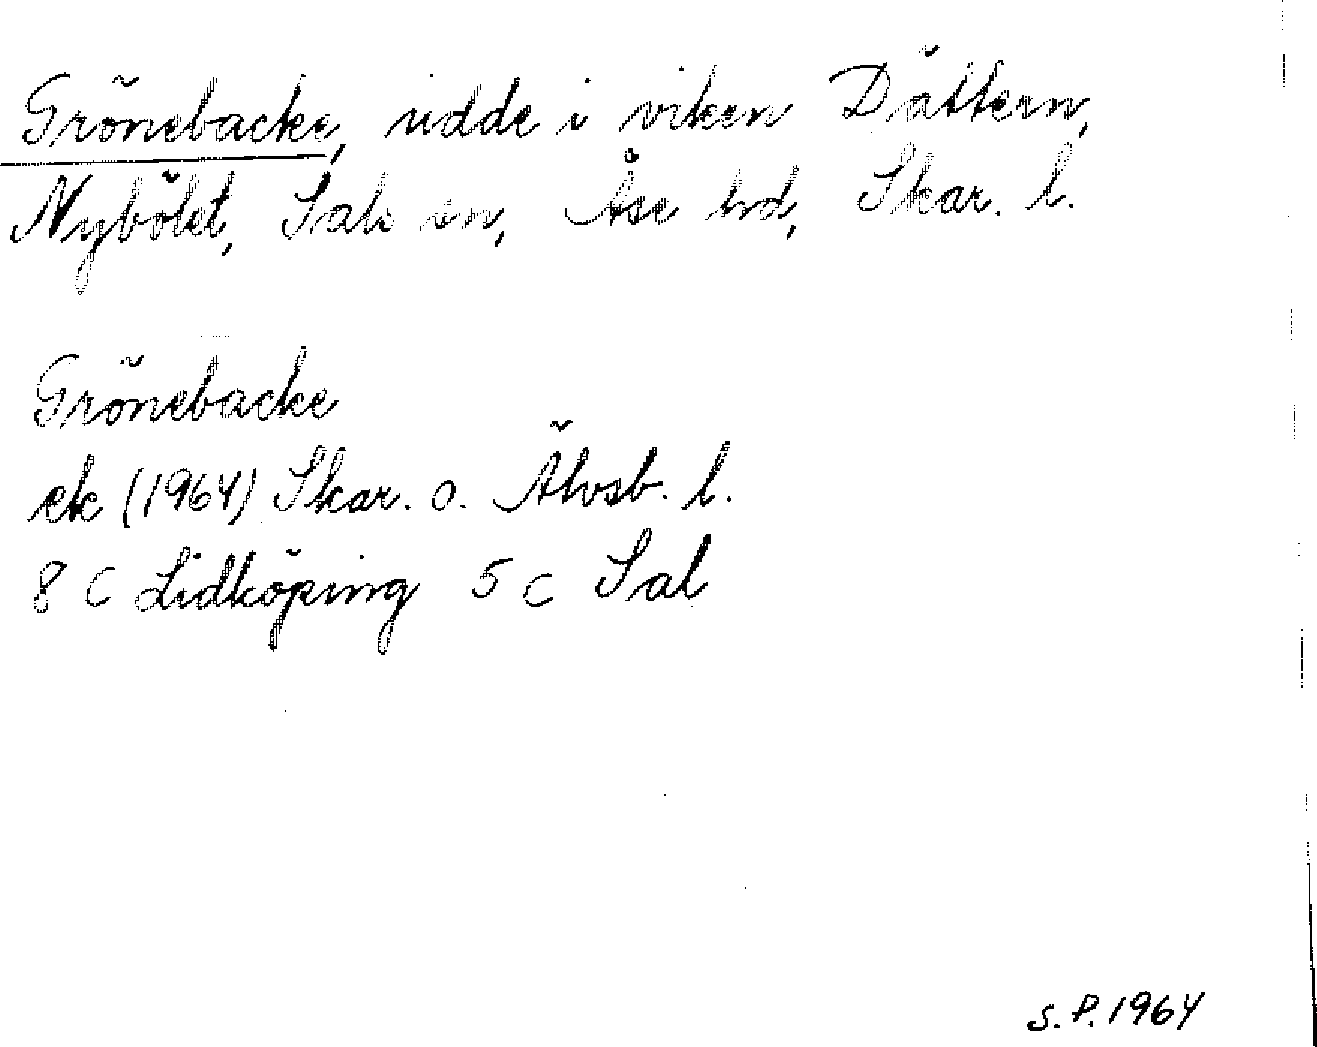 Grönebacke, udde i viken Dättern,
Nybölet, Sals sn, Åse hd, Skar. l.
Grönebacke
ek (1964) Skar. o. Älvsb. l.
8 C Lidköping 5 c Sal
S.P. 1964